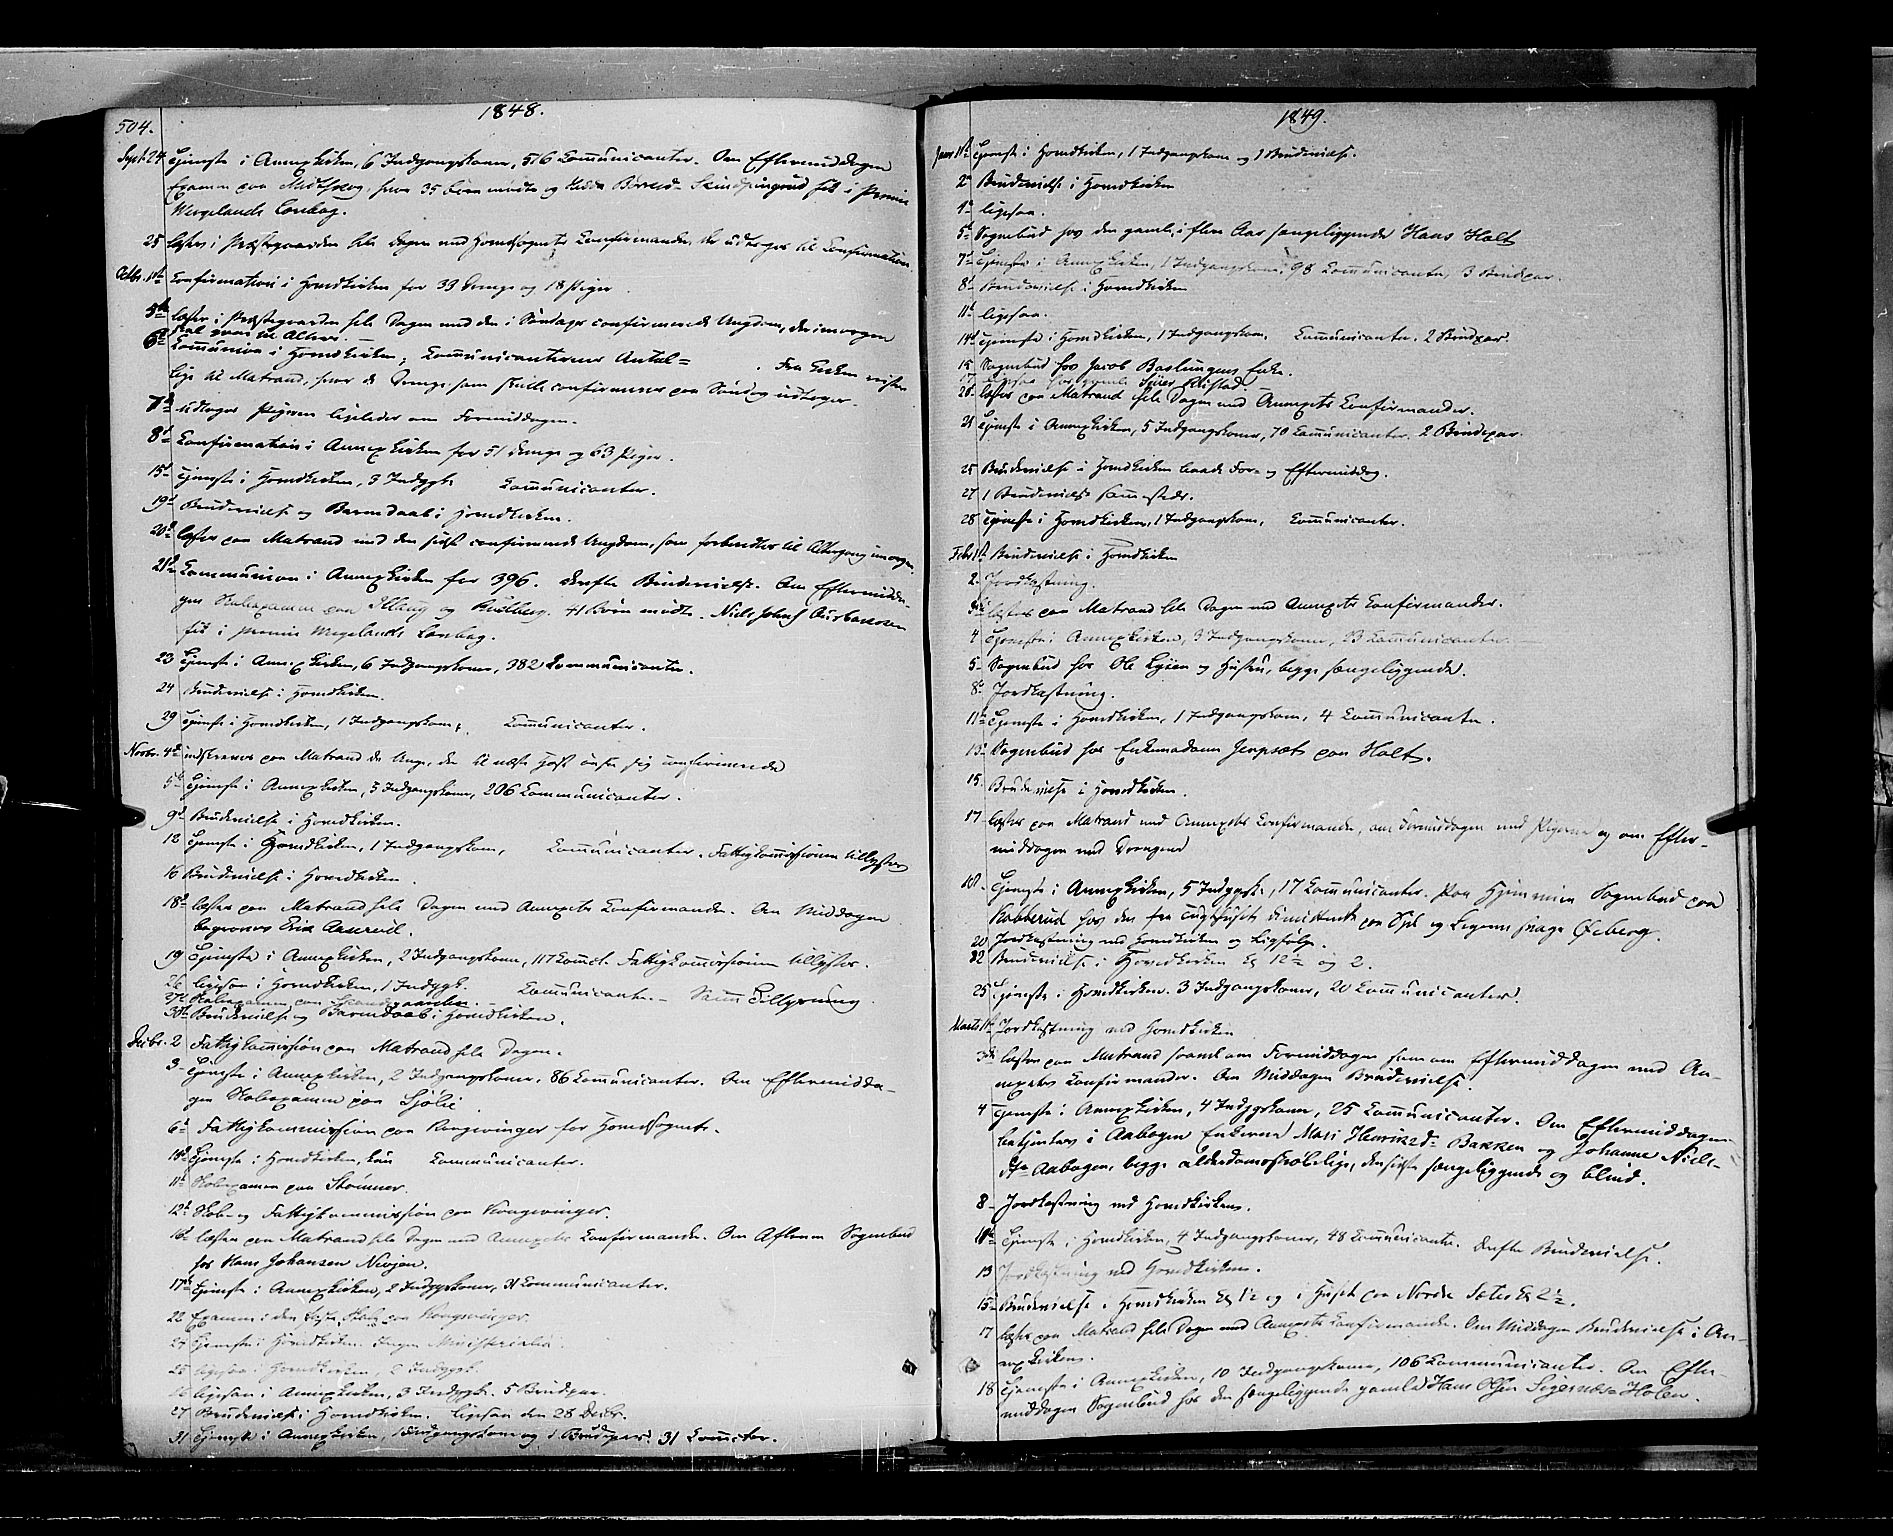 504.
1848.
Sept. 24 Tjeneste i Annexkirken, 6 Indgangskoner, 516 Communicanter. Om Eftermiddagen
Examen paa Midtskog, hvor 35 Børn mødte og fik i Præmie
Wergelands Læsebog.
25 læstes i Præstegaarden hele Dagen med Hovedsognets Confirmander, der udtoges til Confirmation.
Octbr. 1ste Confirmation i Hovedkirken for 33 Drenge og 18 Piger.
5te læstes i Præstegaarden hele Dagen med den i Søndags confirmerede Ungdom, der imorgen
skal gaae til Alters.
6te Communion i Hovedkirken; Communicanternes Antal = . Fra Kirken reiste
lige til Matrand, hvor de Drenge som skulle confirmeres paa Søndag udtoges.
7de udtoges Pigerne ligeledes om Formiddagen.
8de Confirmation i Annexkirken for 51 Drenge og 63 Piger.
15de Tjeneste i Hovedkirken, 3 Indggk. Communicanter.
19de Brudevielse og Barnedaab i Hovedkirken.
20de læstes paa Matrand med den sidst confirmerede Ungdom, som forberedtes til Altergang imorgen.
21de Communion i Annexkirken for 396. derefter Brudevielse. Om Eftermidda-
gen Skoleexamen paa og . 41 Børn mødte. Niels Johns
fik i Præmie Wergelands Læsebog.
23 Tjeneste i Annexkirken, 6 Indgangskoner, 382 Communicanter.
24 Brudevielse i Hovedkirken.
29 Tjeneste i Hovedkirken, 1 Indgangskone, Communicanter.
Novbr. 4de indskreves paa Matrand de Unge, der til næste Høst ønske sig confirmerede
5te Tjeneste i Annexkirken, 3 Indgangskoner, 206 Communicanter.
9de Brudevielse i Hovedkirken.
12 Tjeneste i Hovedkirken, 1 Indgangskone, Communicanter. Fattigkommissionen tillystes
16 Brudevielse i Hovedkirken.
18de læstes paa Matrand hele Dagen med Annexets Confirmander. Om Middagen
begroves Erik Aaserud.
19 Tjeneste i Annexkirken, 2 Indgangskoner, 117 Commct. Fattigkommissionen tillystes.
26 ligesaa i Hovedkirken, 1 Indggk. Communicanter. Samme Tillysning
27de Skoleexamen paa
30te Brudevielse og Barnedaab i Hovedkirken.
Decbr. 2 Fattigkommission paa Matrand hele Dagen.
3 Tjeneste i Annexkirken, 2 Indgangskoner, 86 Communicanter. Om Eftermidda-
gen Skoleexamen paa Sjølie.
6te Fattigkommission paa Kongsvinger for Hovedsognet.
10de Tjeneste i Hovedkirken, Communicanter.
11te Skoleexamen paa Strømner.
12te Skole- og Fattigkommission paa Kongsvinger.
16de læstes paa Matrand hele Dagen med Annexets Confirmander. Om Aftenen Sognebud
hos Hans Johansen
17de Tjeneste i Annexkirken, 2 Indggskoner, 31 Communicanter.
22 Examen i den faste Skole paa Kongsvinger.
24 Tjeneste i Hovedkirken. Ingen Ministerialia.
25 ligesaa i Hovedkirken, 2 Indggk.
26 ligesaa i Annexkirken, 3 Indggk. 5 Brudepar.
27 Brudevielse i Hovedkirken. ligesaa den 28 Decbr.
31 Tjeneste i Annexkirken, 1 Indgangskone og 1 Brudepar. 31 Commcter.
1849.
Janr 1ste Tjeneste i Hovedkirken, 1 Indgangskone og 1 Brudevielse.
2 Brudevielse i Hovedkirken
ligesaa.
5te Sognebud hos den gamle, i flere Aar sængeliggende Hans Holt
7de Tjeneste i Annexkirken, 1 Indgangskone, 98 Communicanter, 3 Brudepar.
8de Brudevielse i Hovedkirken
11te ligesaa.
14de Tjeneste i Hovedkirken, 1 Indgangskone, Communicanter. 2 Brudepar.
15 Sognebud hos Jacob Baslungens Enke.
17 ligesaa hos gamle
20 læstes paa Matrand hele Dagen med Annexets Confirmander.
21 Tjeneste i Annexkirken, 5 Indgangskoner, 70 Communicanter. 2 Brudepar.
25 Brudevielse i Hovedkirken baade For- og Eftermiddag.
27 1 Brudevielse sammesteds.
28 Tjeneste i Hovedkirken, 1 Indgangskone, Communicanter.
Febr 1ste Brudevielse i Hovedkirken
2 Jordkastning.
3die læstes paa Matrand hele Dagen med Annexets Confirmander.
4 Tjeneste i Annexkirken, 3 Indgangskoner, 23 Communicanter.
5 Sognebud hos Ole og Hustru, begge sængeliggende.
8de Jordkastning.
11te Tjeneste i Hovedkirken, 1 Indgangskone, 4 Communicanter.
13de Sognebud hos Enkemadame paa Holt.
15 Brudevielse i Hovedkirken.
17 læstes paa Matrand med Annexets Confirmander, om Formiddagen med Pigerne og om Efter-
middagen med Drengene
18 Tjeneste i Annexkirken, 5 Indggsk., 17 Communicanter. Paa Hjemveien Sognebud paa
Skobberud hos den fra Tugthuset dimitterede paa Sjel og Legeme svage Øiberg.
20 Jordkastning ved Hovedkirken og Ligfølge.
22 Brudevielse i Hovedkirken Kl 12½ og 2.
25 Tjeneste i Hovedkirken. 3 Indgangskoner, 20 Communicanter.
Marts 1ste Jordkastning ved Hovedkirken
3die læstes paa Matrand saavel om Formiddagen som om Eftermiddagen med An-
nexets Confirmander. Om Middagen Brudevielse.
4 Tjeneste i Annexkirken, 4 Indggskoner, 25 Communicanter. Om Eftermiddagen
betjentes i Aabogen Enkerne Mari Henriksd. Bakken og Johanne Niels-
dtr Aabogen, begge alderdomsskrøbelige, den sidste sængeliggende og blind.
8 Jordkastning ved Hovedkirken.
11te Tjeneste i Hovedkirken, 4 Indgangskoner, 48 Communicanter. Derefter Brudevielse.
13 Jordkastning ved Hovedkirken.
15de Brudevielse i Hovedkirken Kl 12 og i Huset paa Nordre Sæter Kl 2½.
17 læstes paa Matrand hele Dagen med Annexets Confirmander. Om Middagen Brudevielse i An-
nexkirken.
18 Tjeneste i Annexkirken, 10 Indgangskoner, 106 Communicanter. Om Efter-
middagen Sognebud hos den sængeliggende gamle Hans Olsen Sigernæs-Holen.